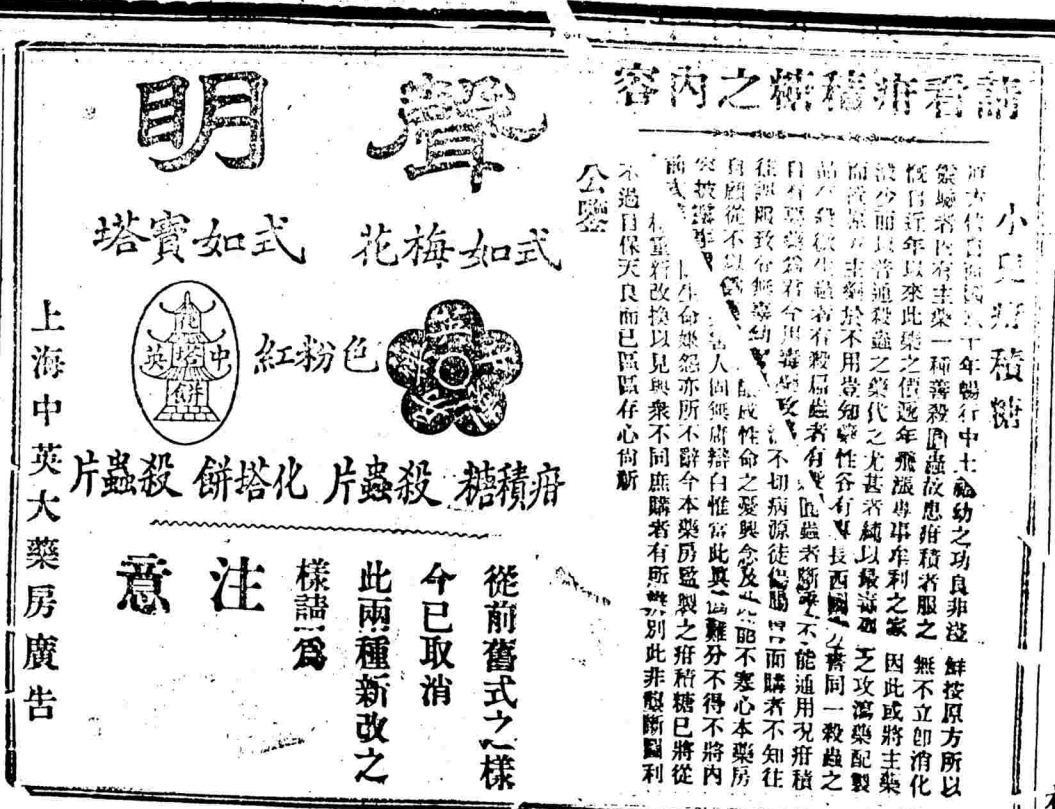 請看疳積糖之內容
小兒疳積糖
十年暢行中土福幼之功良非淺鮮按原方所以
者內有主藥一種善殺蛔蟲故患疳積者服之無不立卽消化
慨自近年以來此藥之價逐年飛漲專事牟利之家因此或將主藥
減少而以普通殺蟲之藥代之尤甚者純以最毒之攻瀉藥配製
而置原方主藥於不用豈知藥性各有專長西國方書同一殺蟲之
品有殺微生蟲者有殺扁蟲者有蛔蟲者斷乎不能通用況疳積
自有主藥爲君今用毒藥攻不切病源徒傷腸胃而購者不知往
往誤服致令無辜幼釀成性命之憂興念及此能不寒心本藥房
自顧從不以害人固無庸辯白惟當此真僞難分不得不將內
容披生命嫌怨亦所不辭今本藥房監製之疳積糖已將從
前式重行改換以見與眾不同庶購者有所辨別此非壟斷圖利
不過自保天良而已區區存心尚祈
公鑒
聲明
式如梅花
式如寶塔
色粉紅
花塔餅
中英
疳積糖 殺蟲片
化塔餅 殺蟲片
從前舊式之樣
今已取消
此兩種新改之
樣請爲
注意
上海中英大藥房廣告